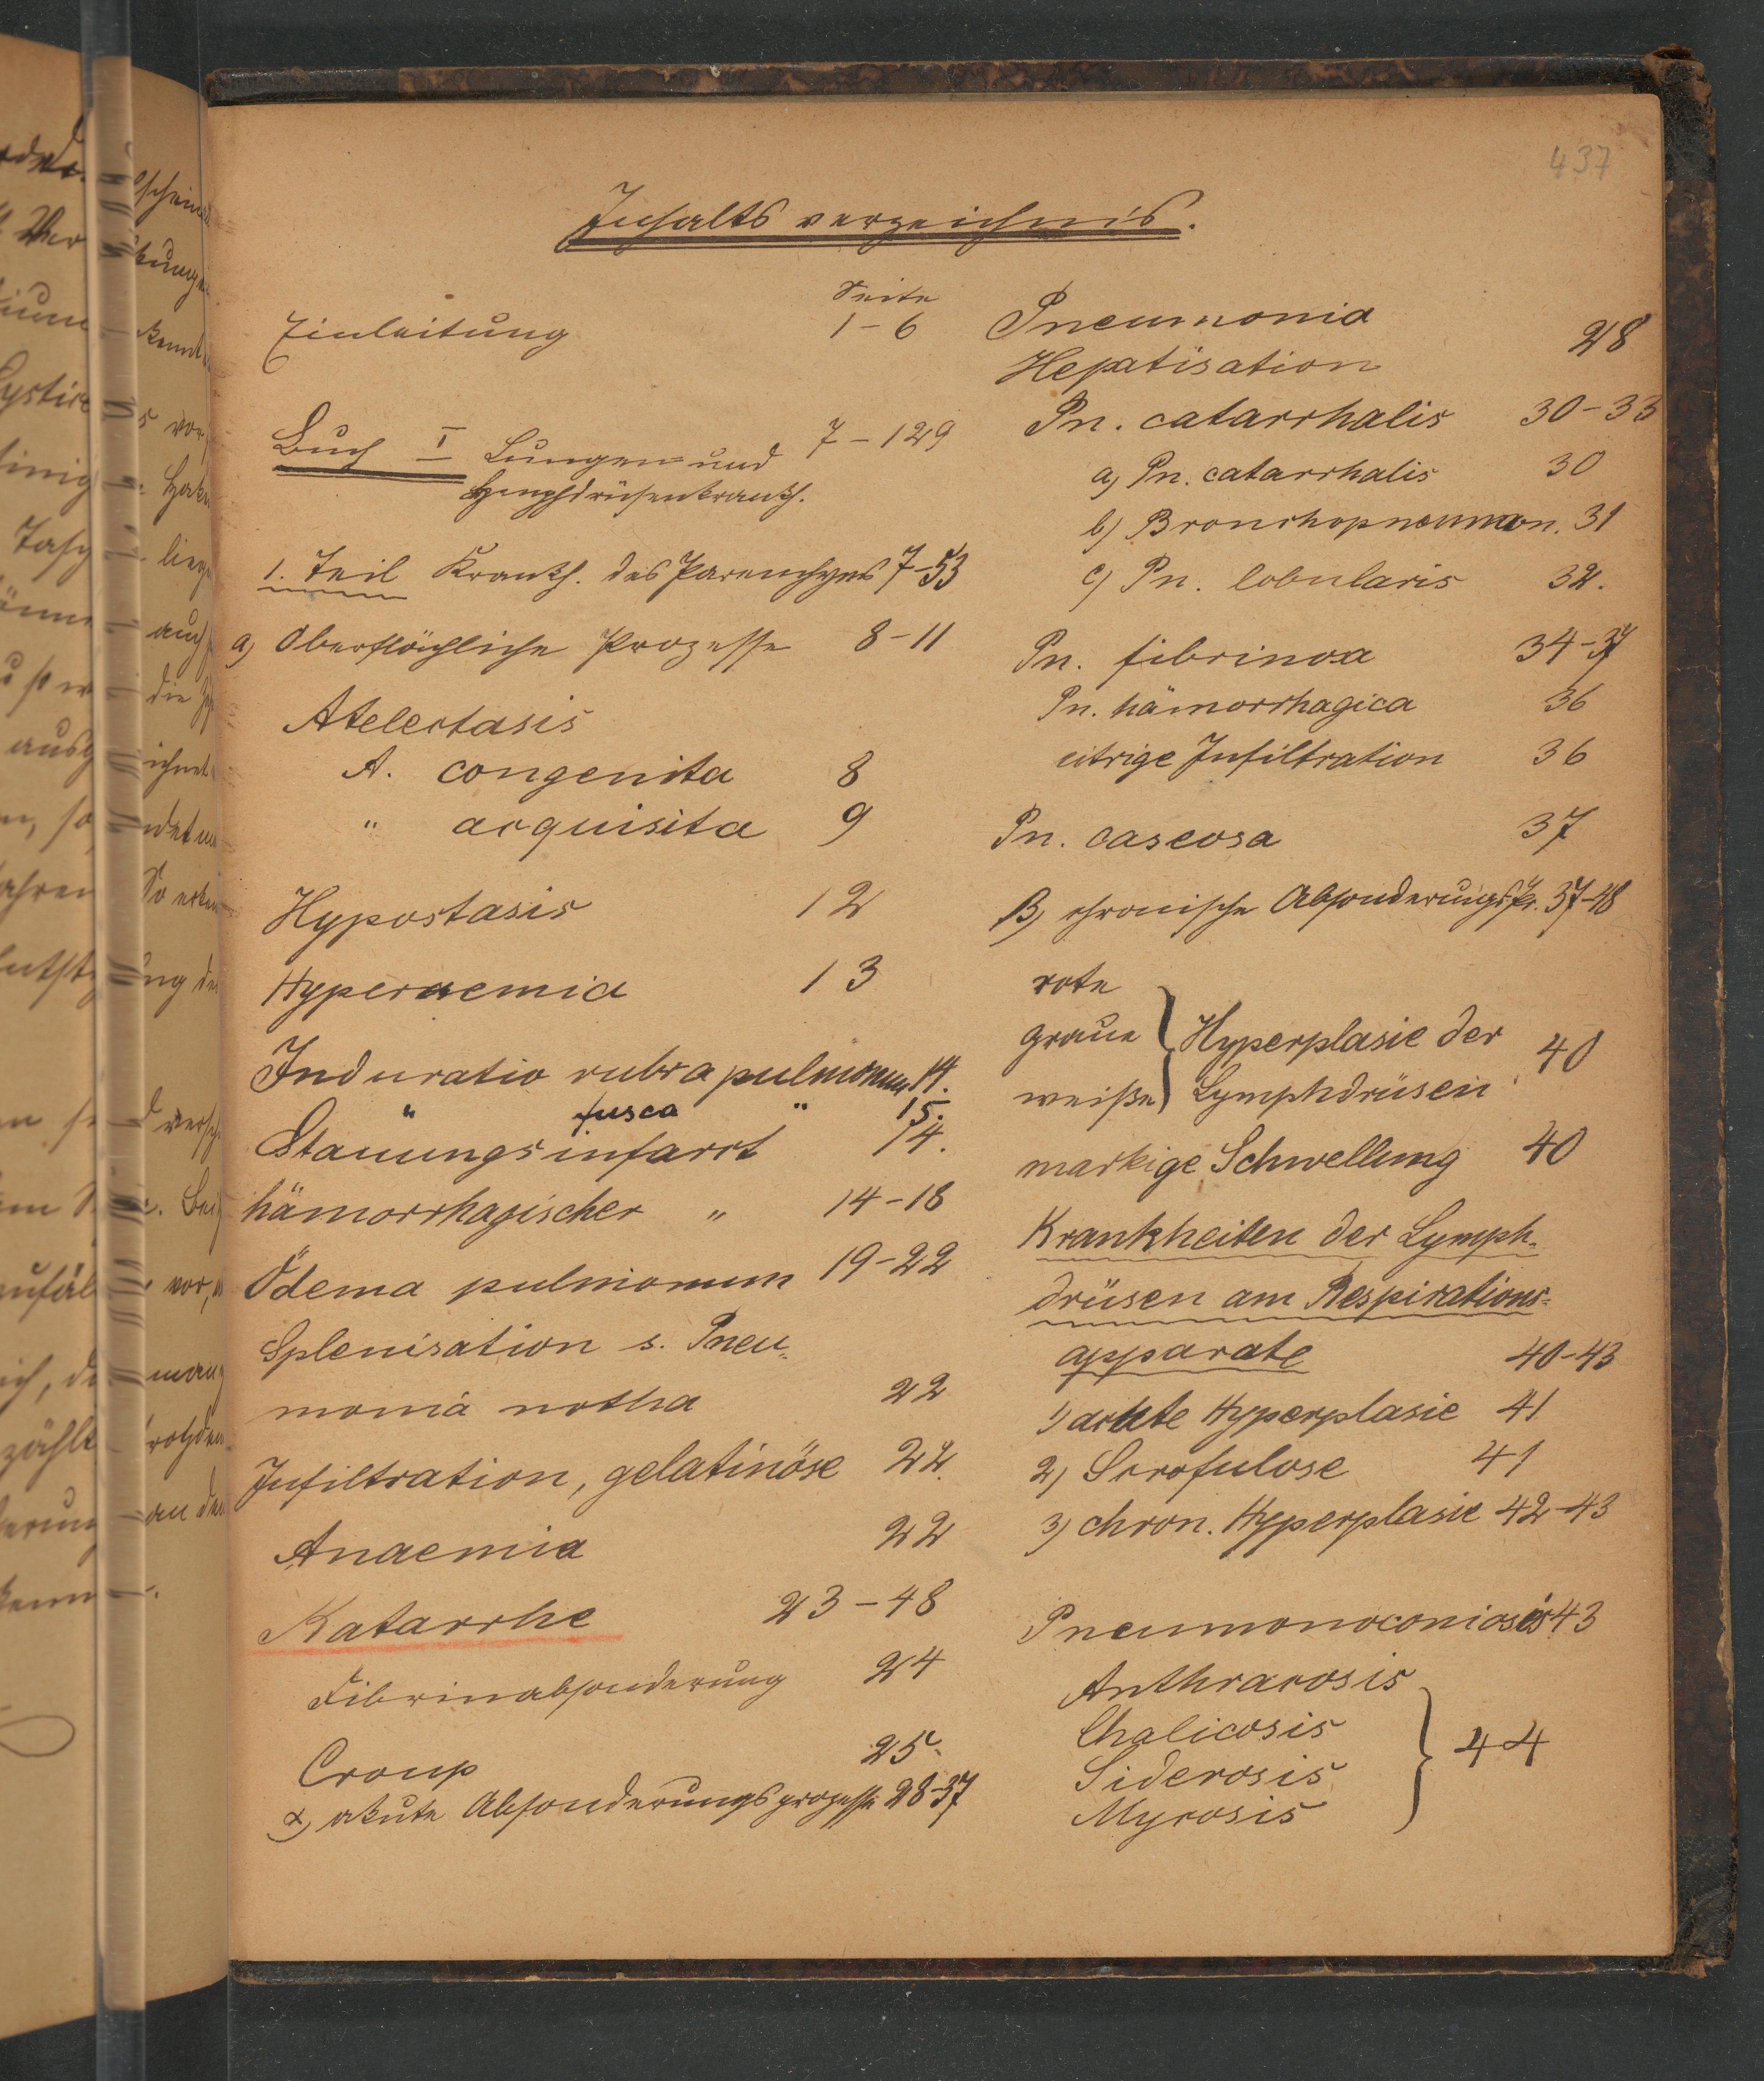 437
Inhaltsverzeichnis.
Seite
Einleitung 1-6
Buch I Lungen und 7-129
Lymphdrüsenkrankh.
1. Teil Krankh. des Parenchyms 7-53
a) Oberflächliche Prozesse 8-11
Atelectasis
A. congenita 8
" acquisita 9
Hypostasis 12
Hyperaemia 13
Induratio rubra pulmonum 14.
" fusca " 15.
Stauungsinfarct 14.
hämorrhagischer " 14-18
Ödema pulmonum 19-22
Splenisation s. Pneu-
monia notha 22
Infiltration, gelatinöse 22.
Anaemia 22
Katarrhe 23-48
Fibrinabsonderung 24
Croup 25.
α) akute Absonderungsprozesse 28-37
Pneumonia
Hepatisation 28
Pn. catarrhalis 30-33
a) Pn. catarrhalis 30
b) Bronchopneumon. 31
c) Pn. lobularis 32.
Pn. fibrinosa 34-37
Pn. hämorrhagica 36
eitrige Infiltration 36
Pn. caseosa 37
β) chronische Absonderungspr. 37-48
rote
graue } Hyperplasie der 40
weiße } Lymphdrüsen
markige Schwellung 40
Krankheiten der Lymph-
drüsen am Respirations-
apparate 40-43
1) acute Hyperplasie 41
2) Scrofulose 41
3) chron. Hyperplasie 42-43
Pneumonoconiosis 43
Anthracosis
Chalicosis } 44
Siderosis
Mycosis